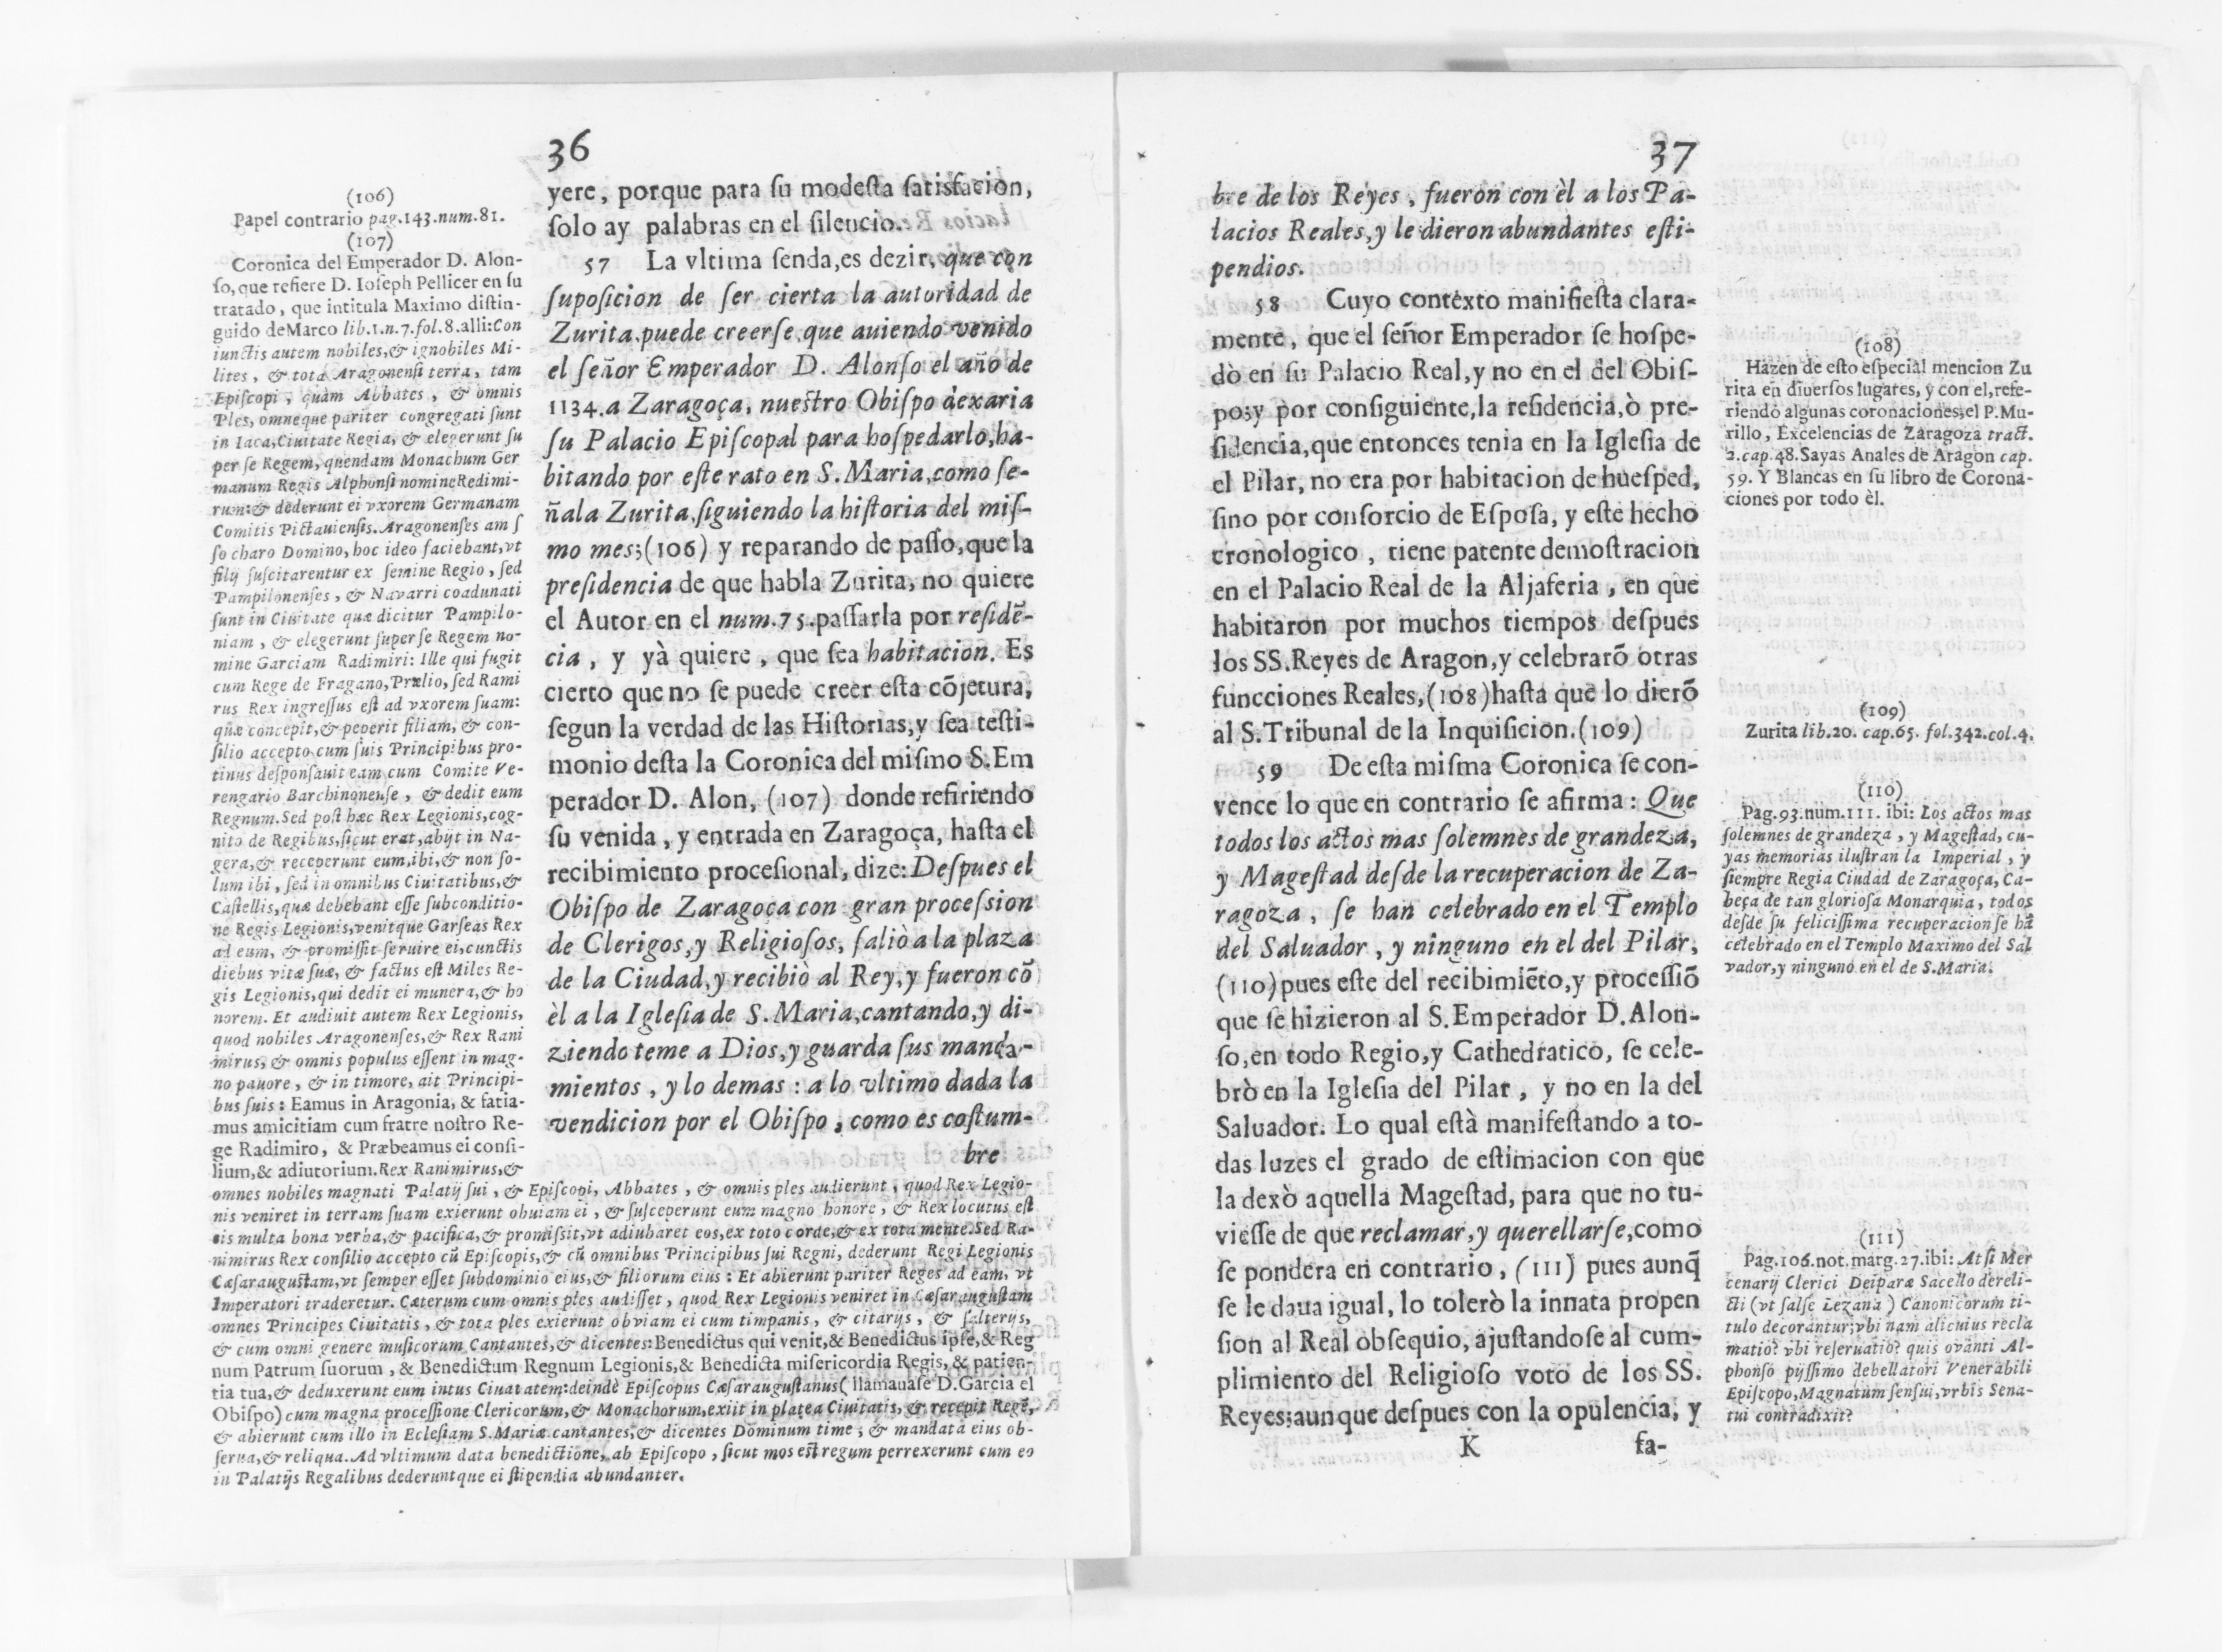 36
yere, porque para ſu modeſta ſatisfacion,
ſolo ay palabras en el ſilencio.
57 La vltima ſenda,es dezir, que con
ſupoſicion de ſer cierta la autoridad de
Zurita,puede creerſe,que auiendo venido
el ſeñor Emperador D. Alonſo el año de
1134.a Zaragoça, nueſtro Obiſpo dexaria
ſu Palacio Epiſcopal para hoſpedarlo,ha-
bitando por eſte rato en S. Maria,como ſe-
ñala Zurita,ſiguiendo la hiſtoria del miſ-
mo mes;(106) y reparando de paſſo,que la
preſidencia de que habla Zurita, no quiere
el Autor en el num.75.paſſarla por reſidē-
cia, y yà quiere, que ſea habitacion. Es
cierto que no ſe puede creer eſta cōjetura,
ſegun la verdad de las Hiſtorias,y ſea teſti-
monio deſta la Coronica del miſmo S.Em
perador D. Alon, (107) donde refiriendo
ſu venida, y entrada en Zaragoça, haſta el
recibimiento proceſional, dize: Deſpues el
Obiſpo de Zaragoça con gran proceſsion
de Clerigos,y Religioſos, ſaliò a la plaza
de la Ciudad,y recibiò al Rey,y fueron cō
èl a la Igleſia de S. Maria,cantando,y di-
ziendo teme a Dios,y guarda ſus manda-
mientos, y lo demas: a lo vltimo dada la
vendicion por el Obiſpo, como es coſtum-
bre
(106)
Papel contrario pag.143.num.81.
(107)
Coronica del Emperador D. Alon-
ſo,que refiere D. Ioſeph Pellicer en ſu
tratado, que intitula Maximo diſtin-
guido deMarco lib.1.n.7.fol.8.alli:Con
iunctis autem nobiles,& ignobiles Mi-
lites, & tota Aragonenſi terra, tam
Epiſcopi, quàm Abbates, & omnis
Ples, omneque pariter congregati ſunt
in Iaca,Ciuitate Regia, & elegerunt ſu
per ſe Regem, quendam Monachum Ger
manum Regis Alphonſi nomineRedimi-
rum:& dederunt ei vxorem Germanam
Comitis Pictauienſis. Aragonenſes am ſ
ſo charo Domino, hoc ideo faciebant,vt
filij ſuſcitarentur ex ſemine Regio, ſed
Pampilonenſes, & Navarri coadunati
ſunt in Ciuitate quæ dicitur Pampilo-
niam, & elegerunt ſuper ſe Regem no-
mine Garciam Radimiri: Ille qui fugit
cum Rege de Fragano, Prælio, ſed Rami
rus Rex ingreſſus eſt ad vxorem ſuam:
quæ concepit,& peperit filiam, & con-
ſilio accepto cum ſuis Principibus pro-
tinus deſponſauit eam cum Comite Ve-
rengario Barchinonenſe, & dedit eum
Regnum. Sed poſt hæc Rex Legionis,cog-
nito de Regibus,ſicut erat,abijt in Na-
gera,& receperunt eum,ibi,& non ſo-
lum ibi, ſed in omnibus Ciuitatibus,&
Caſtellis,quæ debebant eſſe ſubconditio-
ne Regis Legionis,venitque Garſeas Rex
ad eum, & promiſſit ſeruire ei,cunctis
diebus vitæ ſuæ, & factus eſt Miles Re-
gis Legionis,qui dedit ei munera,& ho
norem. Et audiuit autem Rex Legionis,
quod nobiles Aragonenſes,& Rex Rani
mirus, & omnis populus eſſent in mag-
no pauore, & in timore, ait Principi-
bus ſuis: Eamus in Aragonia, & fatia-
mus amicitiam cum fratre noſtro Re-
ge Radimiro, & Præbeamus ei conſi-
lium,& adiutorium.Rex Ranimirus,&
omnes nobiles magnati Palatij ſui, & Epiſcopi, Abbates, & omnis ples audierunt, quod Rex Legio-
nis veniret in terram ſuam exierunt obuiam ei, & ſuſceperunt eum magno honore, & Rex locutus eſt
eis multa bona verba,& pacifica,& promiſsit,vt adiubaret eos,ex toto corde,& ex tota mente.Sed Ra-
nimirus Rex conſilio accepto cū Epiſcopis,& cū omnibus Principibus ſui Regni, dederunt Regi Legionis
Cæſarauguſtam,vt ſemper eſſet ſubdominio eius,& filiorum eius: Et abierunt pariter Reges ad eam, vt
Imperatori traderetur. Cæterum cum omnis ples audiſſet, quod Rex Legionis veniret in Cæſarauguſtam
omnes Principes Ciuitatis, & tota ples exierunt obviam ei cum timpanis, & citarijs, & ſalterijs,
& cum omni genere muſicorum Cantantes,& dicentes:Benedictus qui venit,& Benedictus ipſe,& Reg
num Patrum ſuorum, & Benedictum Regnum Legionis,& Benedicta miſericordia Regis, & patien-
tia tua,& deduxerunt eum intus Ciuatatem:deindè Epiſcopus Cæſarauguſtanus( llamauaſe D.Garcia el
Obiſpo) cum magna proceſſione Clericorum,& Monachorum,exiit in platea Ciuitatis, & recepit Regē,
& abierunt cum illo in Ecleſiam S.Mariæ cantantes,& dicentes Dominum time, & mandata eius ob-
ſerua,& reliqua. Ad vltimum data benedictione, ab Epiſcopo, ſicut mos eſt regum perrexerunt cum eo
in Palatijs Regalibus dederuntque ei ſtipendia abundanter.
37
bre de los Reyes, fueron con èl a los Pa-
lacios Reales,y le dieron abundantes eſti-
pendios.
58 Cuyo contexto manifieſta clara-
mente, que el ſeñor Emperador ſe hoſpe-
dò en ſu Palacio Real,y no en el del Obiſ-
po;y por conſiguiente,la reſidencia,ò pre-
ſidencia,que entonces tenia en la Igleſia de
el Pilar, no era por habitacion de hueſped,
ſino por conſorcio de Eſpoſa, y eſte hecho
cronologico, tiene patente demoſtracion
en el Palacio Real de la Aljaferia, en que
habitaron por muchos tiempos deſpues
los SS.Reyes de Aragon,y celebrarō otras
funcciones Reales,(108)haſta que lo dierō
al S.Tribunal de la Inquiſicion.(109)
59 De eſta miſma Coronica ſe con-
vence lo que en contrario ſe afirma: Que
todos los actos mas ſolemnes de grandeza,
y Mageſtad deſde la recuperacion de Za-
ragoza, ſe han celebrado en el Templo
del Saluador, y ninguno en el del Pilar,
(110)pues eſte del recibimiēto,y proceſſiō
que ſe hizieron al S.Emperador D.Alon-
ſo,en todo Regio,y Cathedratico, ſe cele-
brò en la Igleſia del Pilar, y no en la del
Saluador. Lo qual eſtà manifeſtando a to-
das luzes el grado de eſtimacion con que
la dexò aquella Mageſtad, para que no tu-
vieſſe de que reclamar,y querellarſe,como
ſe pondera en contrario, (111) pues aunq̃
ſe le daua igual, lo tolerò la innata propen
ſion al Real obſequio, ajuſtandoſe al cum-
plimiento del Religioſo voto de los SS.
Reyes;aunque deſpues con la opulencia, y
K fa-
(108)
Hazen de eſto eſpecial mencion Zu
rita en diuerſos lugares, y con el,refe-
riendo algunas coronaciones,el P.Mu-
rillo, Excelencias de Zaragoza tract.
2.cap.48.Sayas Anales de Aragon cap.
59. Y Blancas en ſu libro de Corona-
ciones por todo èl.
(109)
Zurita lib.20. cap.65. fol.342.col.4.
(110)
Pag.93.num.111. ibi: Los actos mas
ſolemnes de grandeza, y Mageſtad, cu-
yas memorias iluſtran la Imperial, y
ſiempre Regia Ciudad de Zaragoça, Ca-
beça de tan glorioſa Monarquia, todos
deſde ſu feliciſſima recuperacion ſe hā
celebrado en el Templo Maximo del Sal
vador,y ninguno en el de S.Maria.
(111)
Pag.106.not.marg.27.ibi: At ſi Mer
cenarij Clerici Deiparæ Sacello dereli-
cti (vt falſe Lezana) Canonicorum ti-
tulo decorantur;vbi nam alicuius recla
matio? vbi reſeruatio? quis ovanti Al-
phonſo pijſſimo debellatori Venerabili
Epiſcopo,Magnatum ſenſui,vrbis Sena-
tui contradixit?